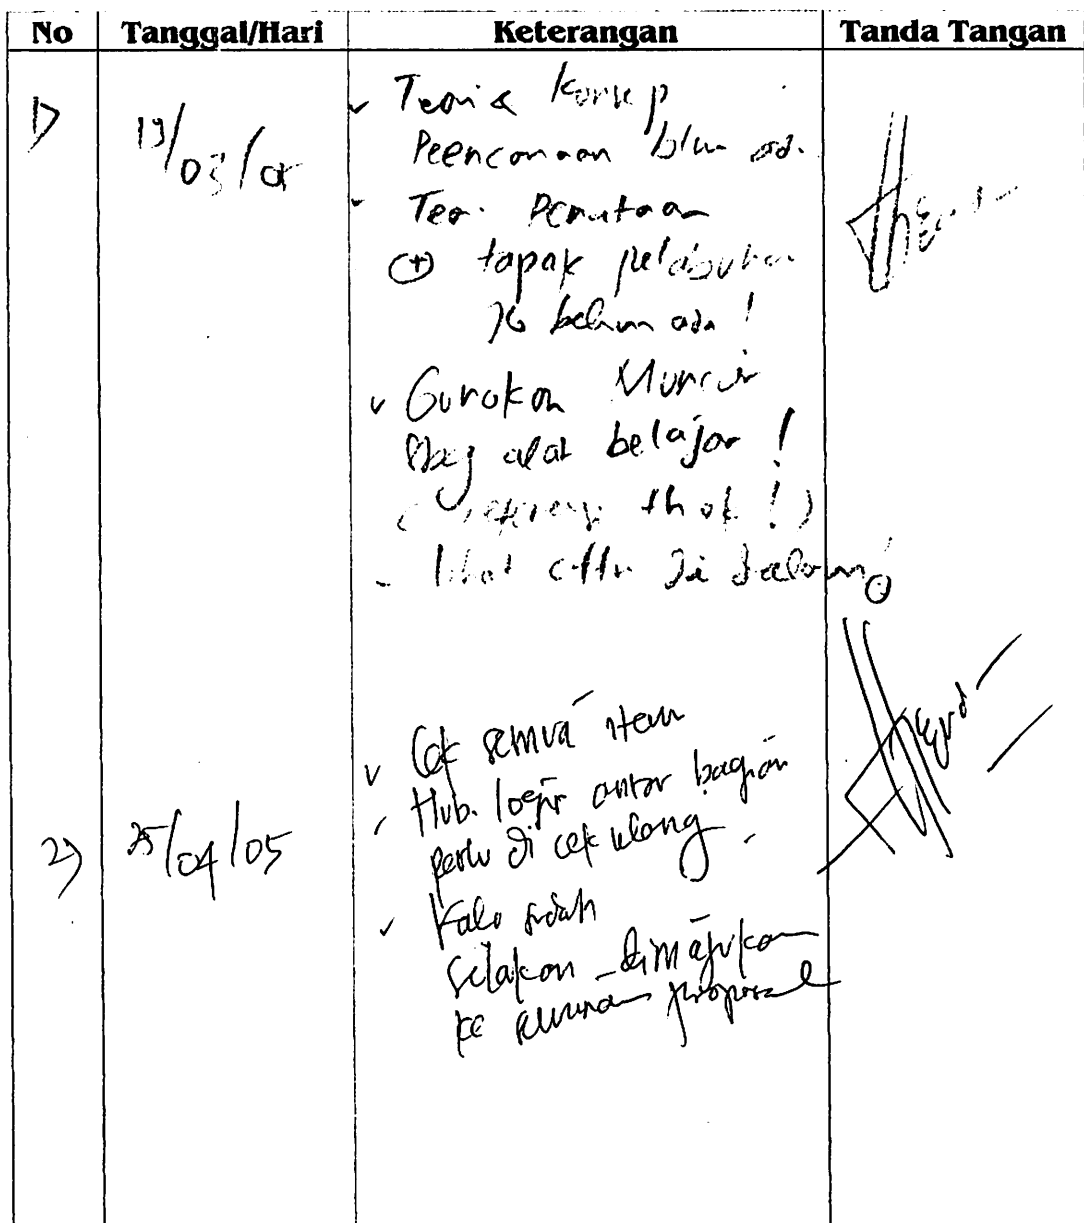 No Tanggal/Hari Keterangan Tanda Tangan
1) 19/03/05 Teori & Konsep
Perencanaan blm ada.
Teori Penataan
+ tapak pelabuhan
belum ada !
Gunakan
sbag alat belajar !
( thok ! )
- lihat di dalam
2) 25/04/05 Cek semua item
Hub. logis antar bagian
perlu di cek ulang
Kalo sudah
silakan dimajukan
ke proposal